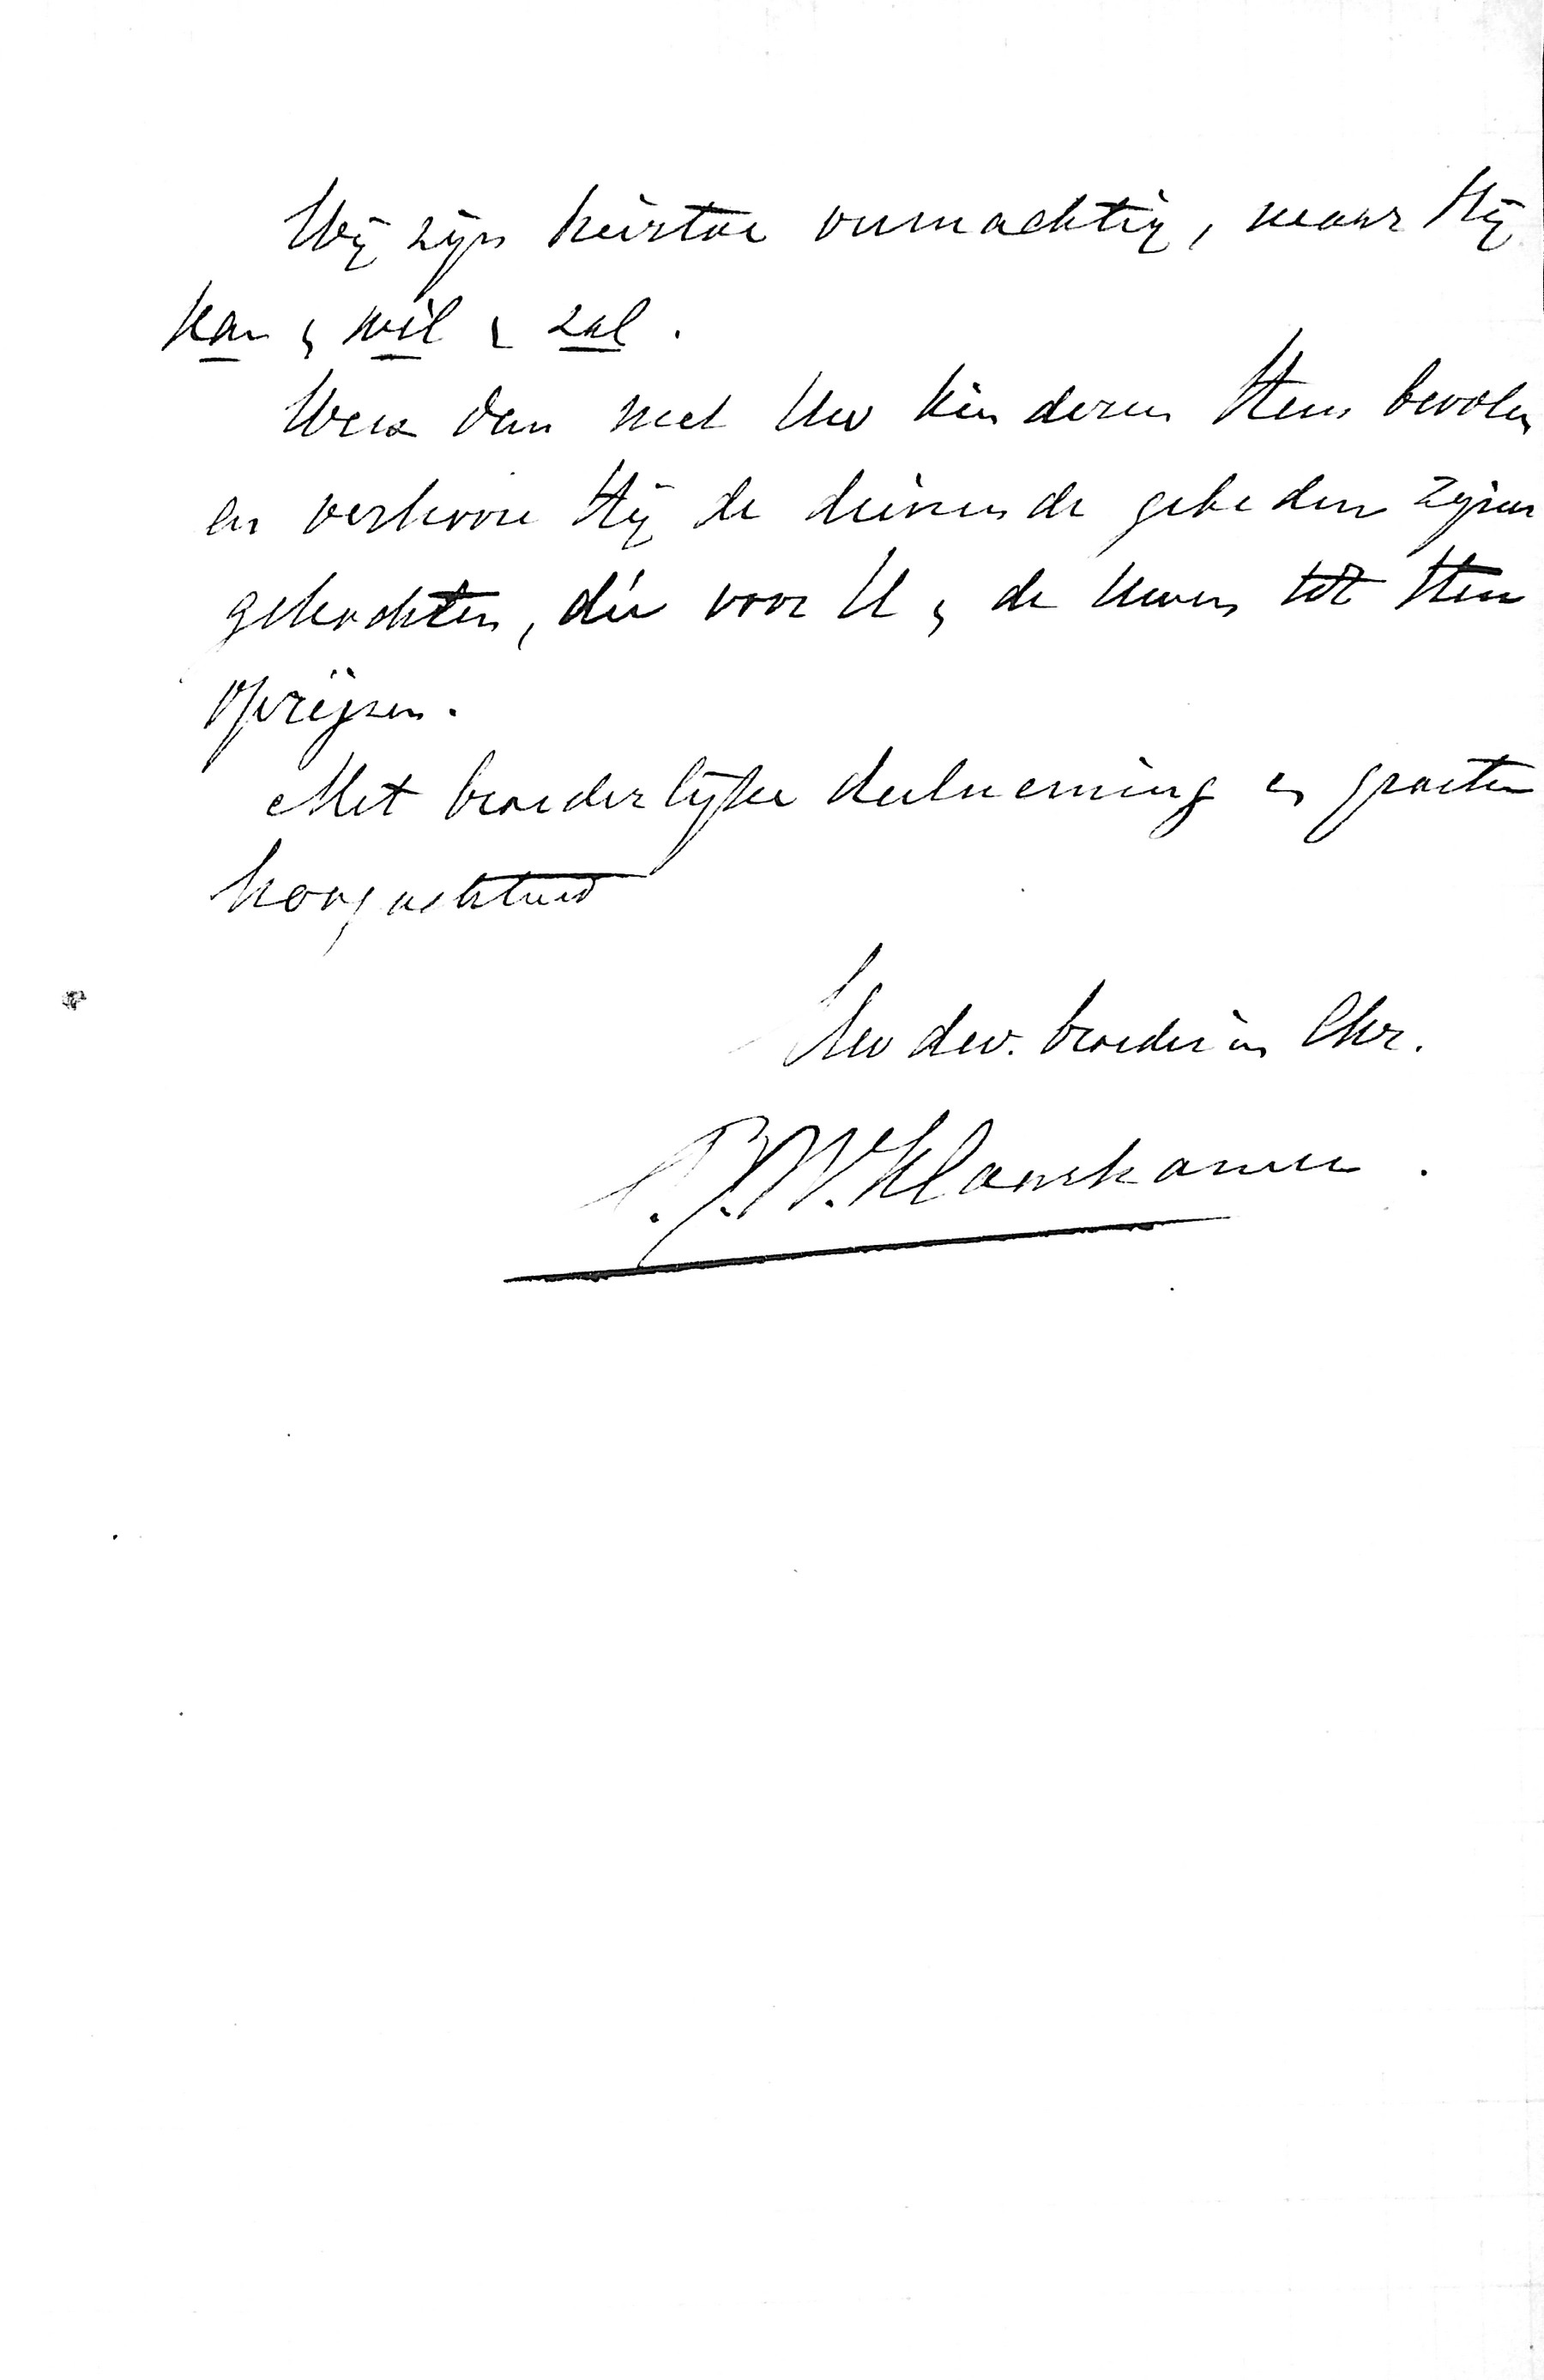 Wij zijn hiertoe onmachtig, maar Hij
kan, wil & zal.
Wees dan met Uw kinderen Hem bevolen
en verhoore Hij de duizende gebeden zijner
gekochten, die voor U & de Uwen tot Hem
oprijzen.
Met broederlijke deelneming en groeten
hoogachtend
Uw dw. broeder in Chr.
J. W.